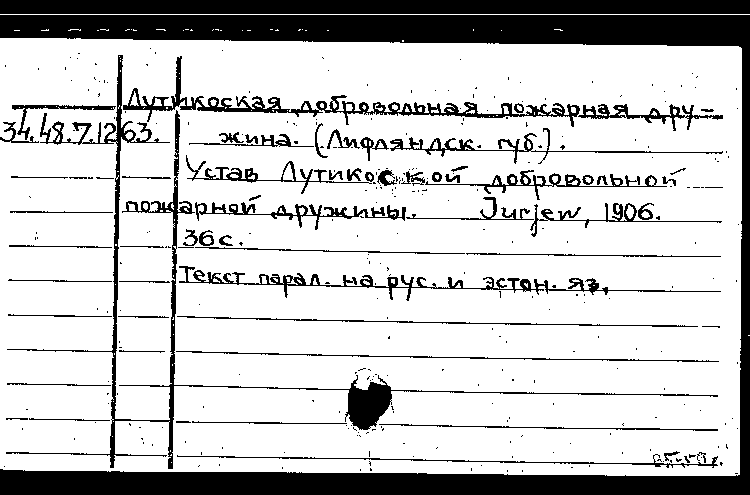 Лутикоская добровольная пожарная дру-
34.48.7.1263. жина. (Лифляндск. губ.).
Устав Лутикоской добровольной
пожарной дружины. Jurjew, 1906.
36 с.
Текст парал. на рус. и эстон. яз.